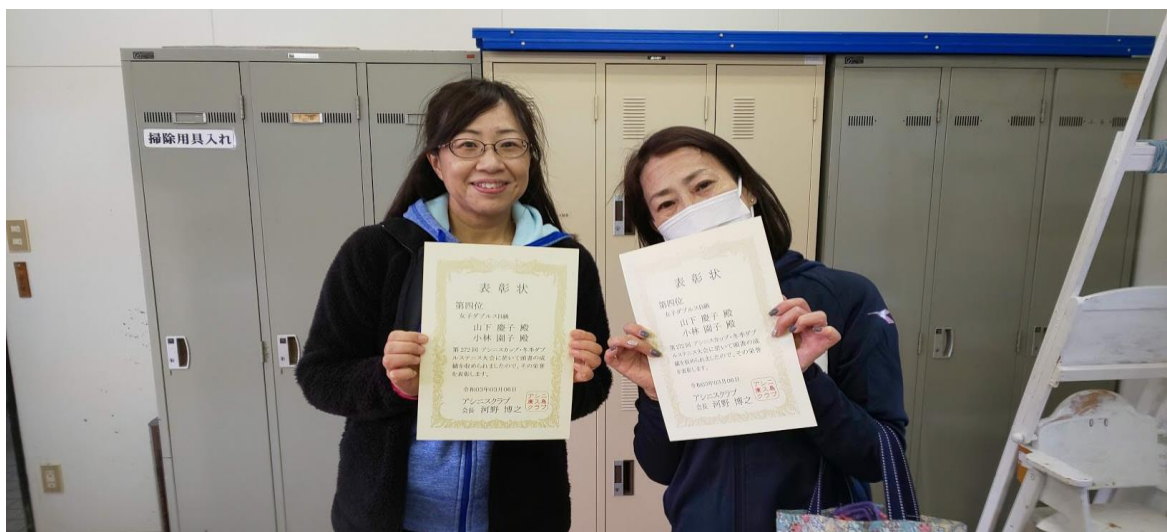 掃除用具入れ
表彰状
第四位
女子ダブルスB級
山下 慶子 殿
小林 園子 殿
第272回 アシニスカップ・冬季ダブ
ルステニス大会に於いて頭書の成
績を収められましたので、その栄誉
を表彰します。
令和03年03月06日
アシニスクラブ
会長 河野 博之
表彰状
第四位
女子ダブルスB級
山下 慶子 殿
小林 園子 殿
第272回 アシニスカップ・冬季ダブ
ルステニス大会に於いて頭書の成
績を収められましたので、その栄誉
を表彰します。
令和03年03月06日
アシニスクラブ
会長 河野 博之